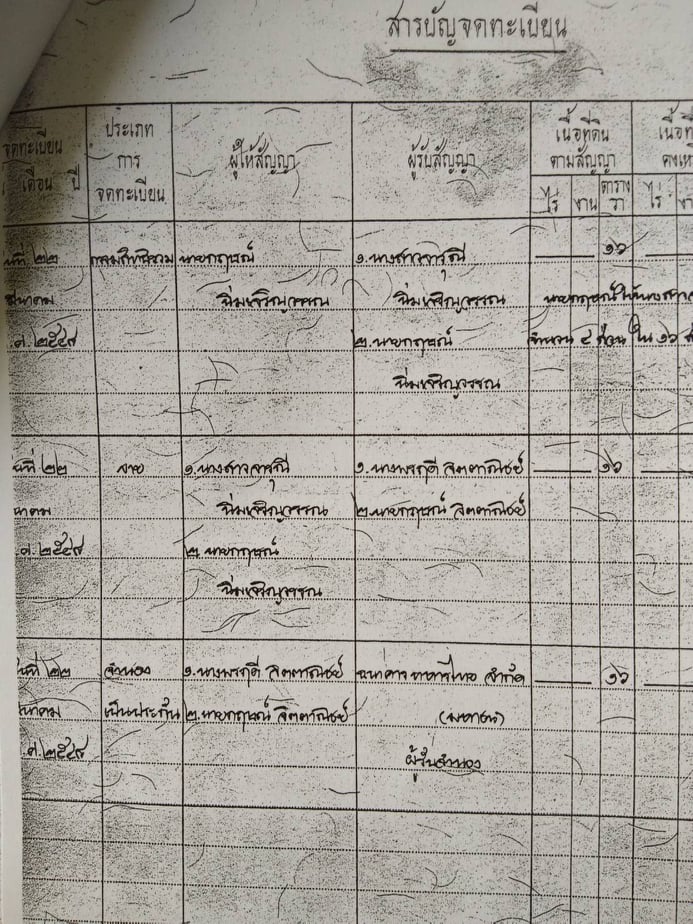 สารบัญจดทะเบียน
จดทะเบียน
เดือน ปี
ประเภท
การ
จดทะเบียน
ผู้ให้สัญญา
ผู้รับสัญญา
เนื้อที่ดิน
ตามสัญญา
ไร่ งาน ตาราง
วา
เนื้อที่
คงเห
ไร่ งา
นที่ ๒๒ กรรมสิทธิ์รวม นายกฤษณ์ ๑.นางสาวจารุณี ๑๖
มีนาคม ฉิ่มเจริญวรรณ ฉิ่มเจริญวรรณ นายกฤษณ์ให้นางสาว
.ศ.๒๕๔๙ ๒.นายกฤษณ์ จำนวน ๔ ส่วน ใน ๑๖ ส
ฉิ่มเจริญวรรณ
นที่ ๒๒ ขาย ๑.นางสาวจารุณี ๑.นางพรฤดี ๑๖
นาคม ฉิ่มเจริญวรรณ ๒.นายกฤษณ์
.ศ.๒๕๔๙ ๒.นายกฤษณ์
ฉิ่มเจริญวรรณ
วันที่ ๒๒ จำนอง ๑.นางพรฤดี ธนาคาร ทหารไทย จำกัด ๑๖
นาคม เป็นประกัน ๒.นายกฤษณ์ (มหาชน)
.ศ.๒๕๔๙ ผู้รับจำนอง